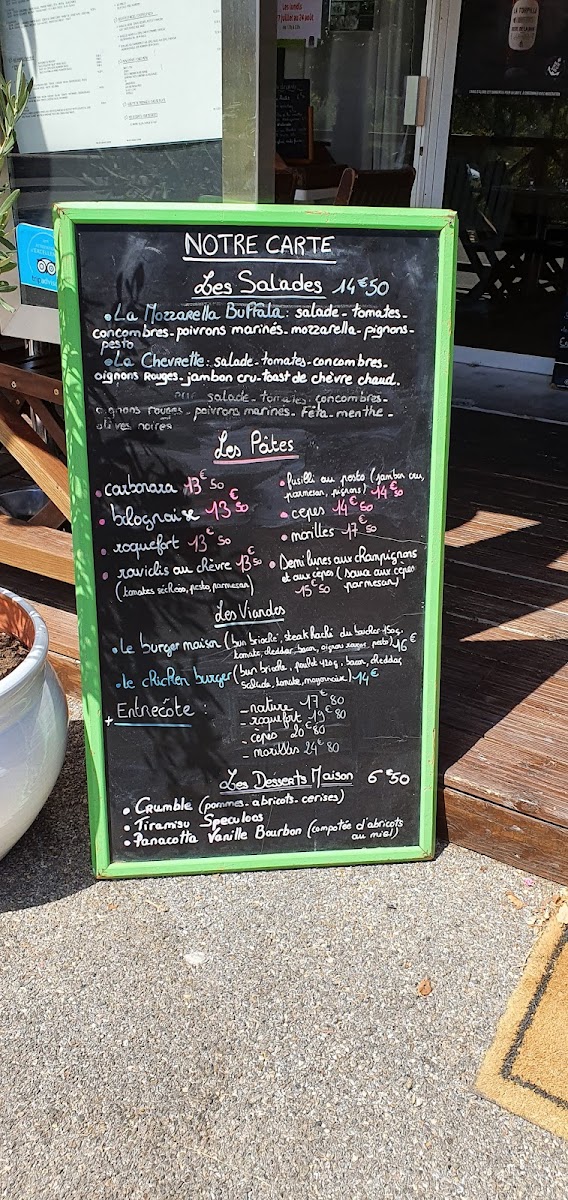 Les lundis
7 juillet au 24 août
NOTRE CARTE
Les Salades 14€50
• La Mozzarella Buffala : salade - tomates -
concombres - poivrons marinés - mozzarella - pignons -
pesto
• La Chevrette : salade - tomates - concombres -
oignons Rouges - jambon cru - toast de chèvre chaud.
salade - tomates - concombres -
oignons rouges - poivrons marinés - Féta - menthe -
olives noires
Les Pâtes
• carbonara 13€50
• bolognaise 13€50
• roquefort 13€50
• raviolis au chèvre 13€50
(tomates séchées, pesto, parmesan)
• fusilli au pesto (jambon cru,
parmesan, pignons) 14€50
• cèpes 14€50
• morilles 17€50
• Demi lunes aux champignons
et aux cèpes (sauce aux cèpes
15€50 parmesan)
Les Viandes
• Le burger maison (bun brioché, steak haché du boucher 150g,
tomate, cheddar, bacon, oignon rouges, pesto) 16€
• Le chicken burger (bun brioché, poulet 120g, bacon, cheddar,
salade, tomate, mayonnaise) 14€
+ Entrecôte :
- nature 17€80
- roquefort 19€80
- cèpes 20€80
- morilles 24€80
Les Desserts Maison 6€50
• Crumble (pommes - abricots - cerises)
• Tiramisu Speculoos
• Panacotta Vanille Bourbon (compotée d'abricots
au miel)